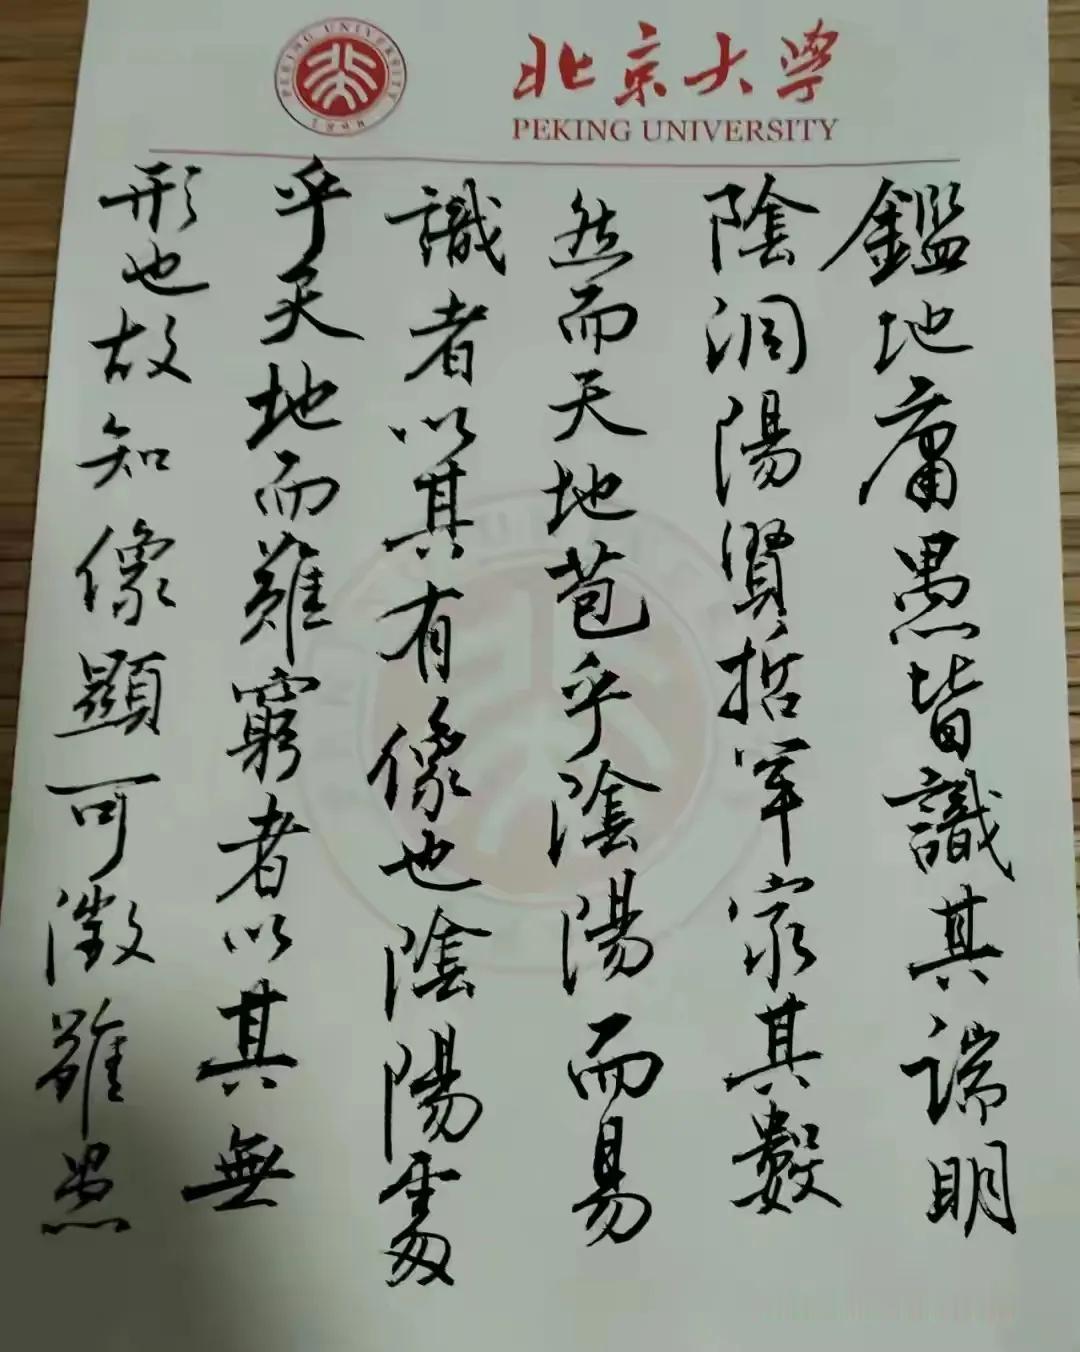 北京大学
PEKING UNIVERSITY
PEKING UNIVERSITY
1898
鑑地庸愚皆識其端明
陰洞陽賢哲罕窮其數
然而天地苞乎陰陽而易
識者以其有像也陰陽處
乎天地而難窮者以其無
形也故知像顯可徵雖愚